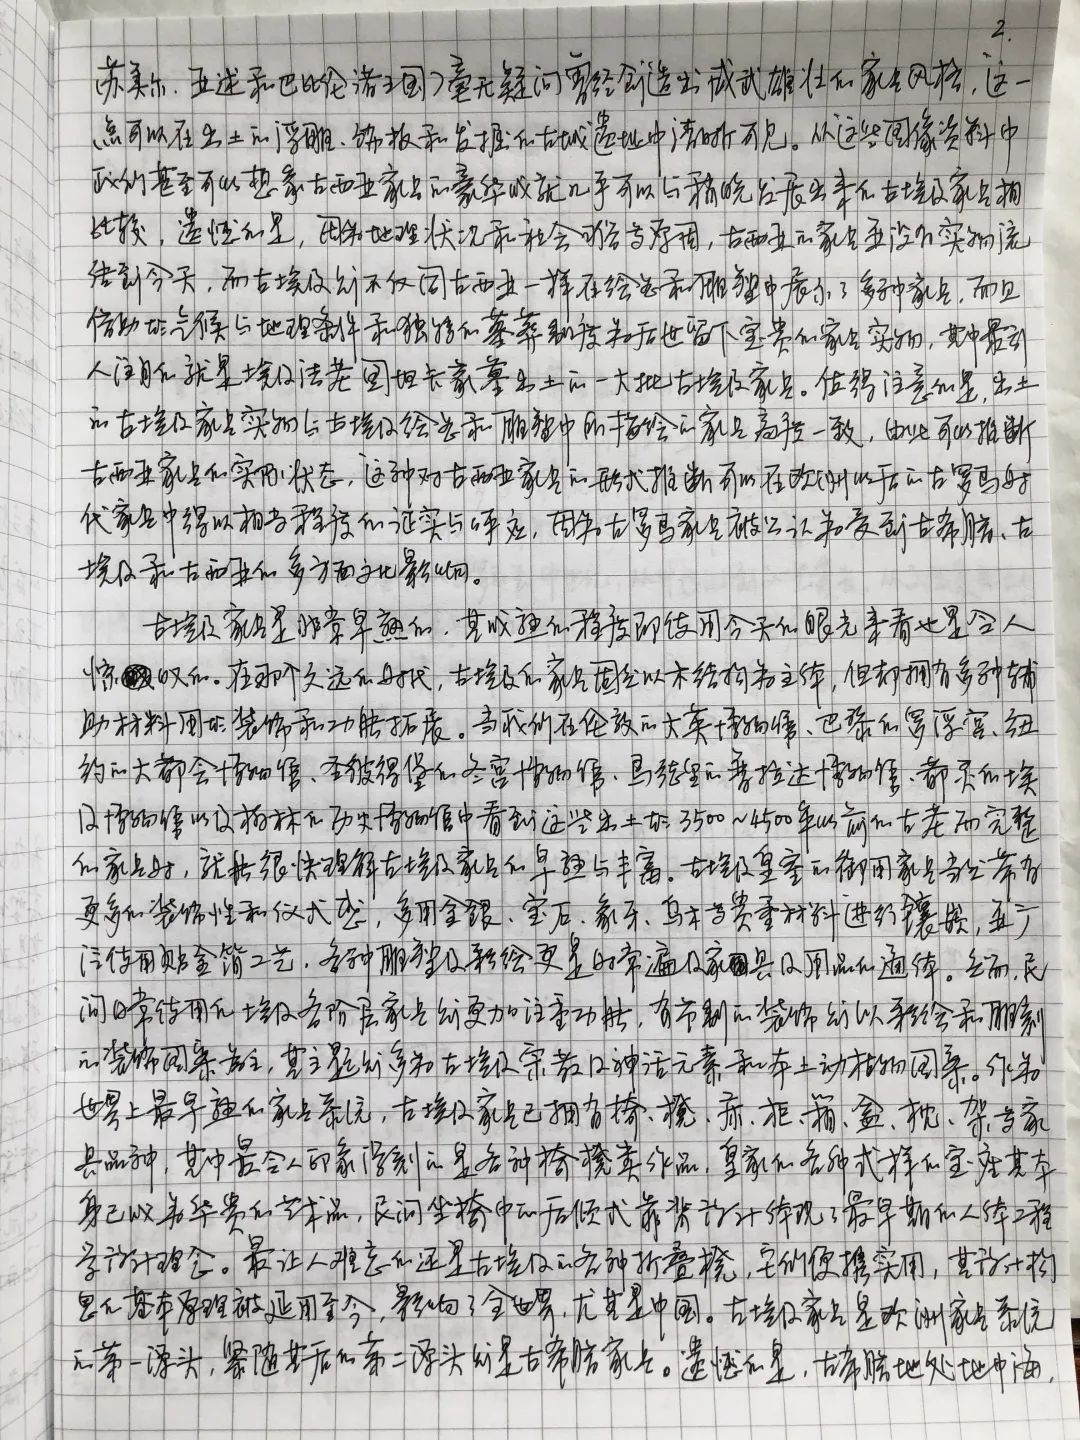 2.
苏美尔、亚述和巴比伦诸王国)毫无疑问曾经创造出威武雄壮的家具风格,这一
点可以在出土的浮雕、饰板和发掘的古城遗址中清晰可见。从这些图像资料中
我们甚至可以想象古西亚家具的豪华成就几乎可以与稍晚发展出来的古埃及家具相
比较,遗憾的是,因为地理状况和社会动态等原因,古西亚的家具并没有实物流
传到今天,而古埃及则不仅同古西亚一样在绘画和雕塑中展示了多种家具,而且
借助于气候与地理条件和独特的墓葬制度为后世留下宝贵的家具实物,其中最引
人注目的就是埃及法老图坦卡蒙墓出土的一大批古埃及家具。值得注意的是,出土
的古埃及家具实物与古埃及绘画和雕塑中所描绘的家具高度一致,由此可以推断
古西亚家具的实际状态,这种对古西亚家具的形式推断可以在欧洲以后的古罗马时
代家具中得以相当程度的证实与呼应,因为古罗马家具被公认为受到古希腊、古
埃及和古西亚的多方面文化影响。
古埃及家具是非常早熟的,其成熟的程度即使用今天的眼光来看也是令人
惊叹的。在那个久远的时代,古埃及的家具固然以木结构为主体,但却拥有多种辅
助材料用于装饰和功能拓展。当我们在伦敦的大英博物馆、巴黎的罗浮宫、纽
约的大都会博物馆、圣彼得堡的冬宫博物馆、马德里的普拉达博物馆、都灵的埃
及博物馆以及柏林的历史博物馆中看到这些出土于3500~4500年以前的古老而完整
的家具时,就能很快理解古埃及家具的早熟与丰富。古埃及皇室的御用家具当然带有
更多的装饰性和仪式感,多用金银、宝石、象牙、乌木等贵重材料进行镶嵌,并广
泛使用贴金箔工艺,各种雕塑及彩绘更是时常遍及家具及用品的通体。然而,民
间日常使用的埃及各阶层家具则更加注重功能,有节制的装饰则以彩绘和雕刻
的装饰图案为主,其主题则多为古埃及宗教及神话元素和本土动植物图案。作为
世界上最早熟的家具系统,古埃及家具已拥有椅、凳、床、柜、箱、盒、枕、架等家
具品种,其中最令人印象深刻的是各种椅凳类作品,皇家的各种式样的宝座其本
身已成为华贵的艺术品,民间坐椅中的后倾式靠背设计体现了最早期的人体工程
学设计理念。最让人难忘的还是古埃及的各种折叠凳,它们便携实用,其设计构
思的基本原理被延用至今,影响了全世界,尤其是中国。古埃及家具是欧洲家具系统
的第一源头,紧随其后的第二源头则是古希腊家具。遗憾的是,古希腊地处地中海,